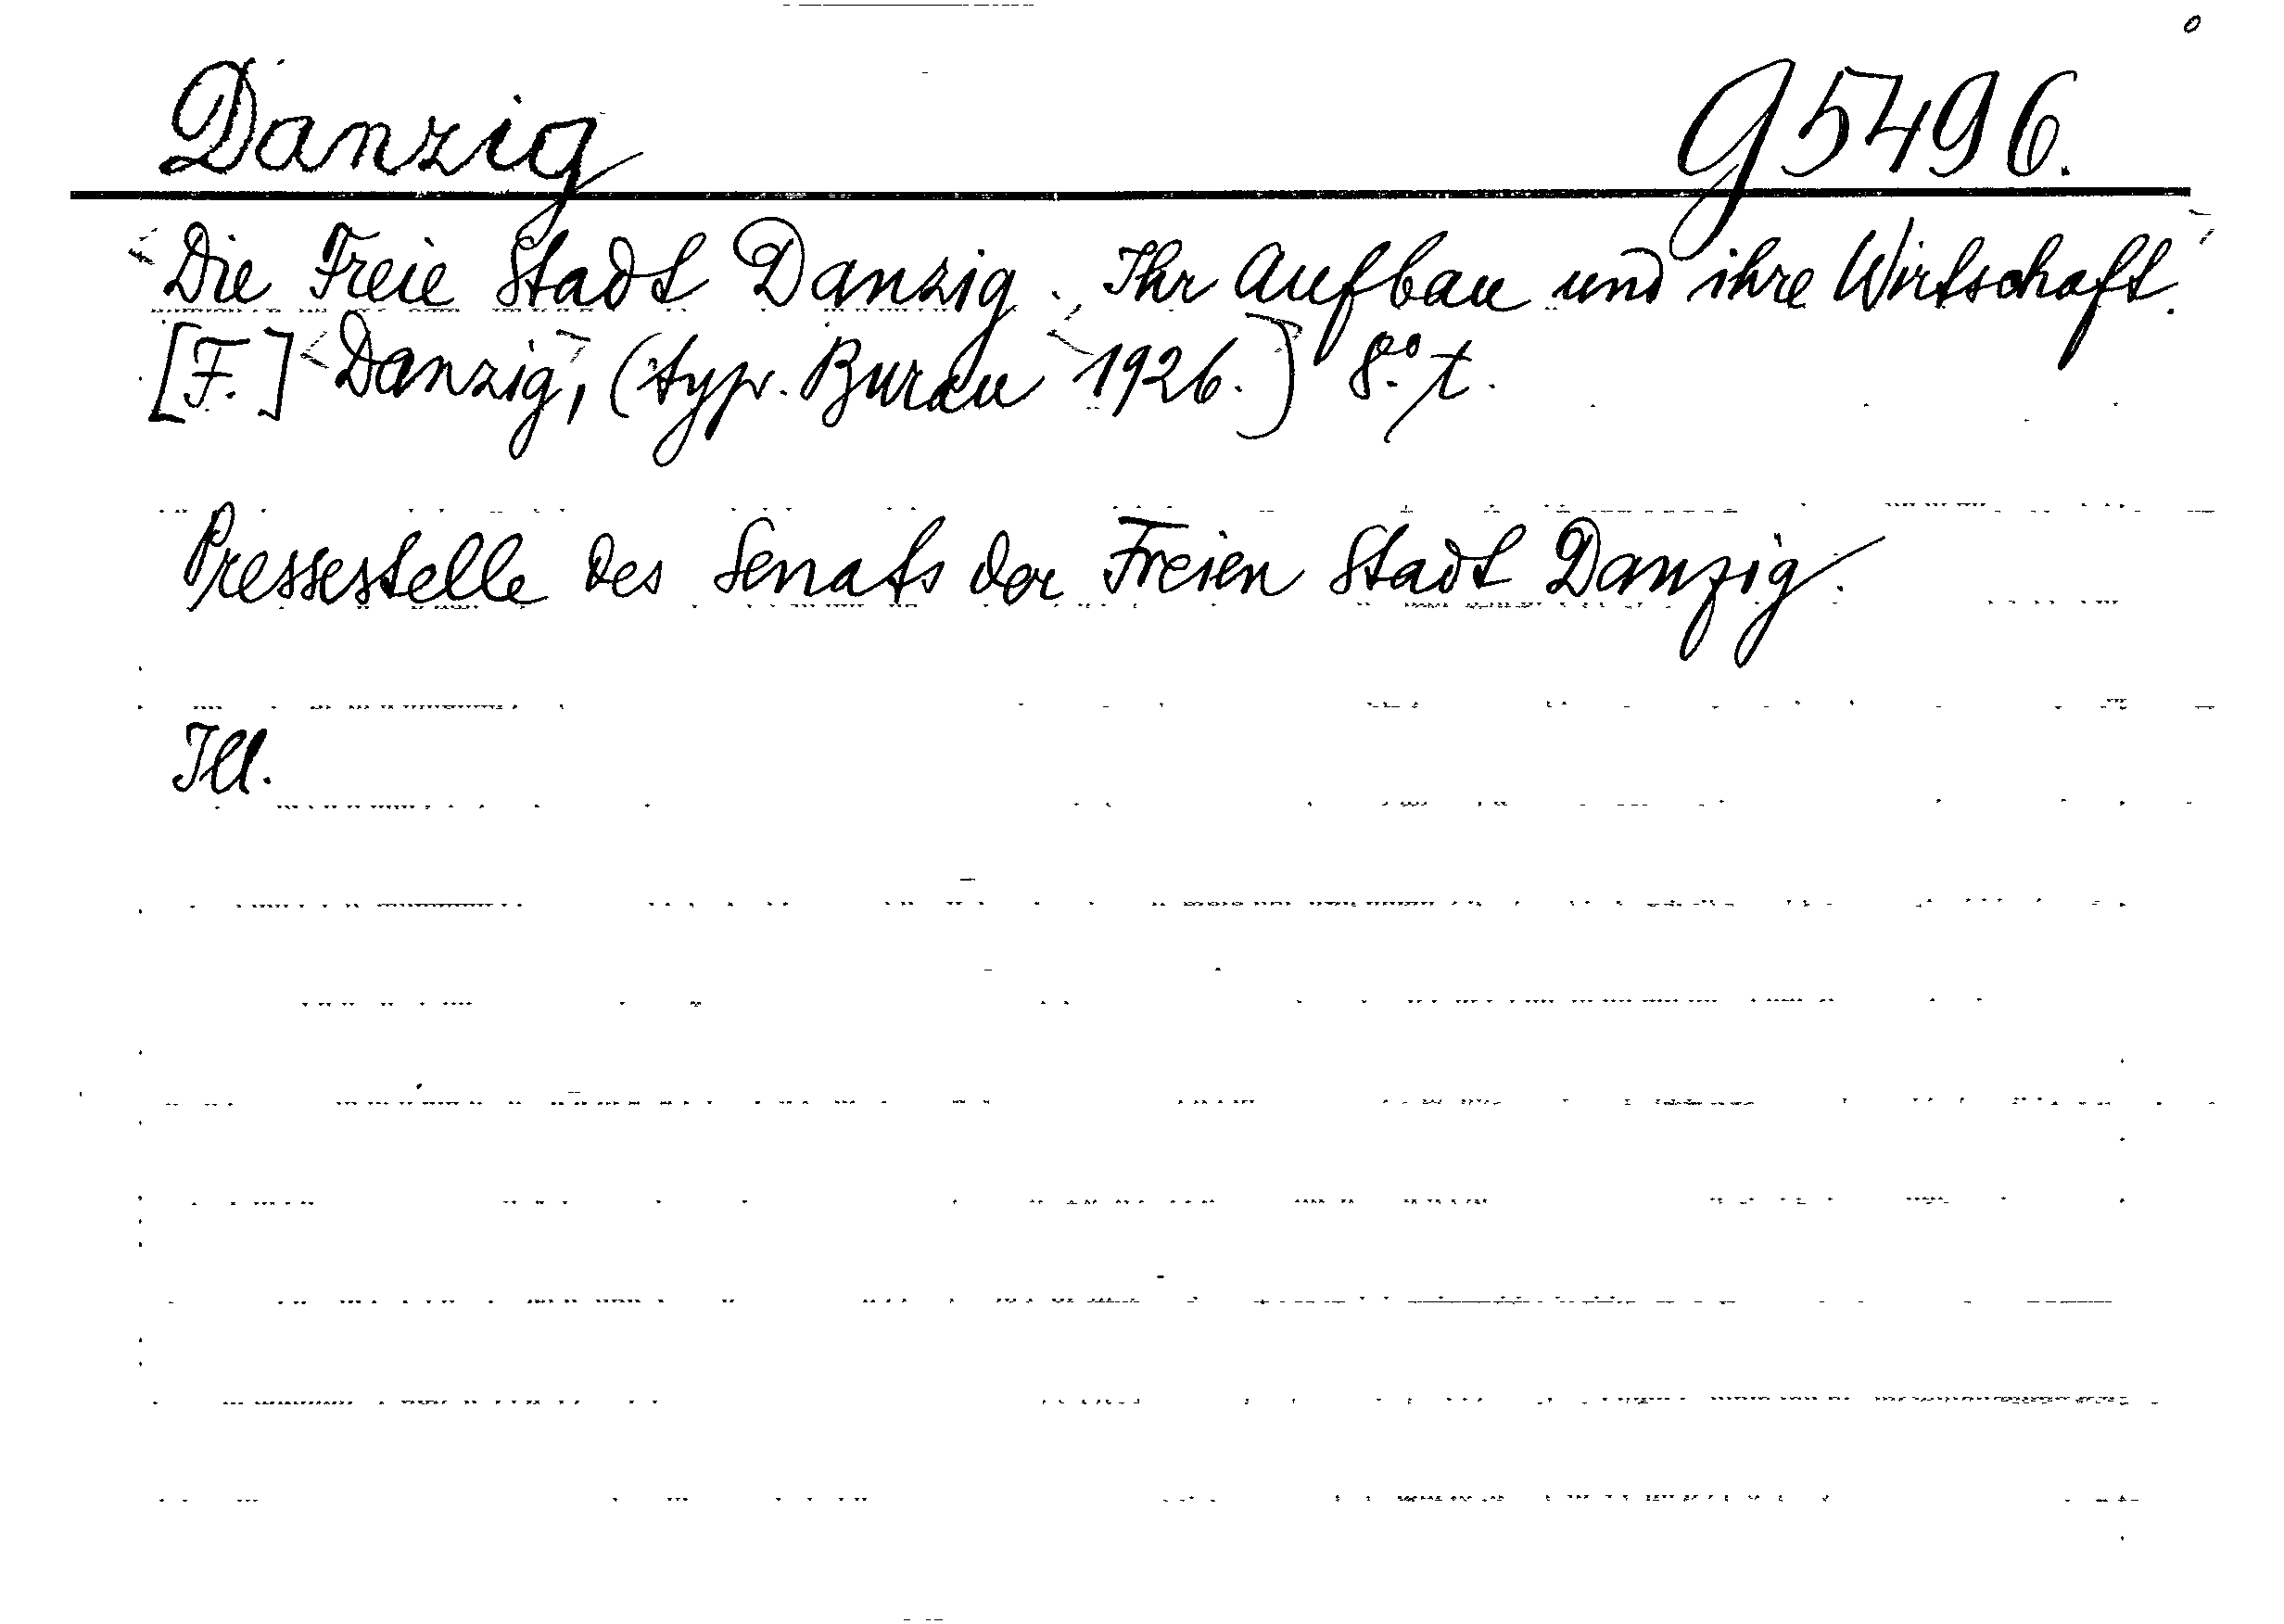 Danzig G 5496.
<Die Freie Stadt Danzig. Ihr Aufbau und ihre Wirtschaft.>
[F.] <Danzig>, (typ. Burau <1926.>) 8.° t.
Pressestelle des Senats der Freien Stadt Danzig.
Ill.